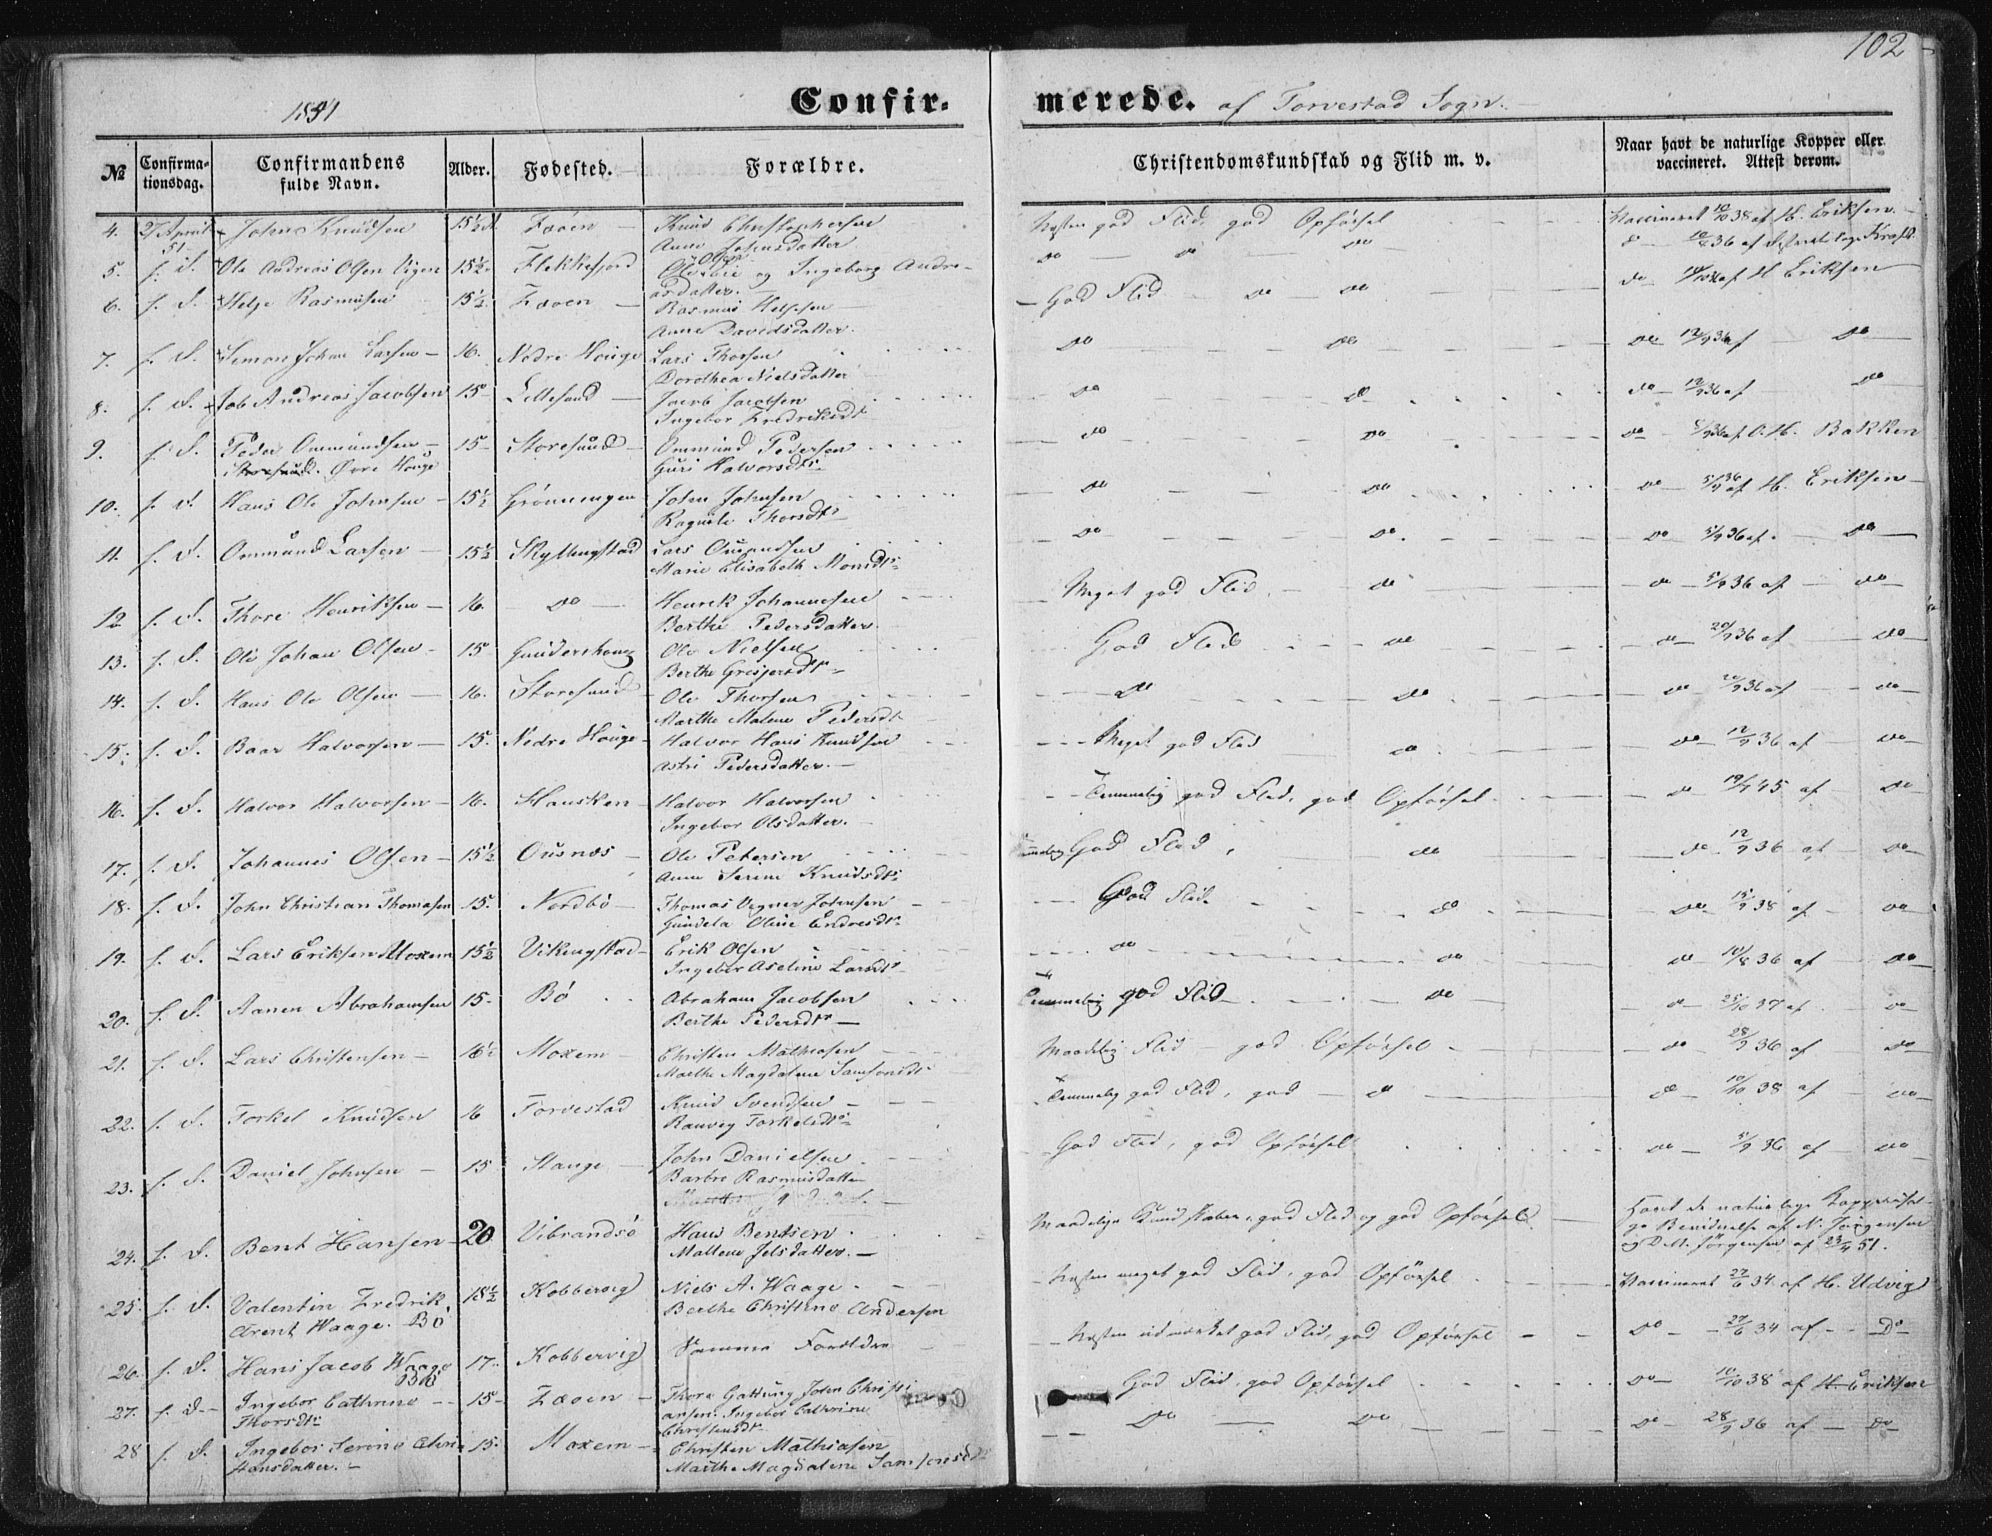 102
1851
Confir-
merede. af Torvestad Sogn.
№
Confirma-
tionsdag.
Confirmandens
fulde Navn.
Alder.
Fødested.
Forældre.
Christendomskundskab og Flid m. v.
Naar havt de naturlige Kopper eller
vaccineret. Attest derom.
4. 27 April John Knudsen 15½ Fæøen Knud Christophersen Næsten god Flid, god Opførsel Vaccineret 10/10 38 af H. Eriksen
51 Anne Johnsdatter
5. s. D. Ole Andreas Olsen Vigen 15½ Flekkefjord Ole og Ingeborg Andre- do do do do
asdatter.
6. s. D. Helje Rasmusen 15½ Fæøen Rasmus Heljesen God Flid do do do af H Eriksen
Anne Davidsdatter
7. s. D. Simon Johan Larsen 16. Nedre Houge Lars Thorsen do do do 12/9 36 af do
Dorothea Nielsdatter
8. s. D. Job Andreas Jacobsen 15 Lillesund Jacob Jacobsen do do do 12/9 36 af do
Ingebor Fredriksdt
9. s. D. Peder Ommundsen 15 Storesund Ommund Pedersen do do do af O. H. Bakken
Storesund. Øvre Houge Guri Halvorsdtr
10. s. D. Hans Ole Johnsen 15½ Grønningen John Johnsen do do do 5/9 36 af H. Eriksen
Ragnile Thorsdtr
11. s. D. Ommund Larsen 15½ Skyllingstad Lars Omundsen do do do 5/9 36 af do
Marie Elisabeth Monsdtr
12 s. D. Thore Henriksen 16. do Henrik Johannesen Meget god Flid do do 5/9 36 af do
Berthe Pedersdatter
13. s. D. Ole Johan Olsen 15 Gundershoug Ole Nielsen God Flid do do 20/9 36 af do
Berthe Gresjersdtr
14. s. D. Hans Ole Olsen 16. Storesund Ole Thorsen do do do 20/9 36 af do
Marthe Malene Pedersdt
15. s. D. Baar Halvorsen 15. Nedre Houge Halvor Hans Knudsen Meget god Flid do do 12/9 36 af do
Astri Pedersdatter.
16. s. D. Halvor Halvorsen 16. Hausken Halvor Halvorsen Temmelig god Flid, god Opførsel do 19/7 45 af do
Ingebor Olsdatter.
17. s. D. Johannes Olsen 15½ Ousnæs Ole Petersen God Flid, do do 12/9 36 af do
Anne Serine Knudsdtr
18. s. D. John Christian Thomasen 15. Nordbø Thomas Vegner Johnsen God Flid do do 15/9 38 af do
Gundela Oline Endresdtr
19. s. D. Lars Eriksen Moxem 15½ Vikingstad Erik Olsen do do do 10/8 36 af do
Ingebor Aseline Larsdtr
20. s. D. Aanen Abrahamsen 15 Bø Abraham Jacobsen Temmelig god Flid do do 25/10 37 af do
Berthe Pedersdtr
21. s. D. Lars Christensen 16½ Moxem Christen Mathiasen Maadelig Flid god Opførsel do 28/9 36 af do
Marthe Magdalene Samsonsdt
22. s. D. Torkel Knudsen 16 Torvestad Knud Svendsen Temmelig god Flid, god do do 10/10 38 af do
Ranveg Torkelsdtr
23. s. D. Daniel Johnsen 15 Stange John Danielsen God Flid, god Opførsel do 5/9 36 af do
Barbro Rasmusdatter
24. s. D. Bent Hansen 20 Vibrandsø Hans Bentsen Maadelige Kundskaber, god Flid og god Opførsel Havt de naturlige Kopper
Maltene Jelsdatter. af N. Jørgensen
og D. M. Jørgensen af 23/4 51.
25. s. D. Valentin Fredrik 18½ Kobbervig Niels A. Waage Næsten meget god Flid, god Opførsel Vaccineret 27/6 34 af H. Udvig
Arent Waage. Bø Berthe Christine Andersen
26. s. D. Hans Jacob Waage 17 Kobbervig Samme Forældre Næsten udmærket god Flid, god Opførsel do 27/6 34 af do
Bø
27. s. D. Ingebor Cathrine 15 Fæøen Thore Gattung John Christi God Flid, god Opførsel do 10/10 38 af H. Eriksen
Thorsdtr ansen. Ingebor Cathrine
Christensdtr
28 s. D. Ingebor Serine Chri 15. Moxem Christen Mathiasen do do do 28/9 36 af do
stensdatter. Marthe Magdalene Samsonsdt